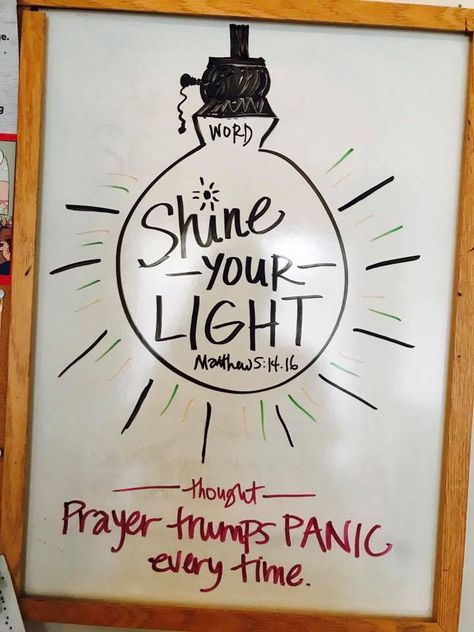 WORD
Shine
-YOUR-
LIGHT
Matthew 5:14.16
-thought-
Prayer trumps PANIC
every time.